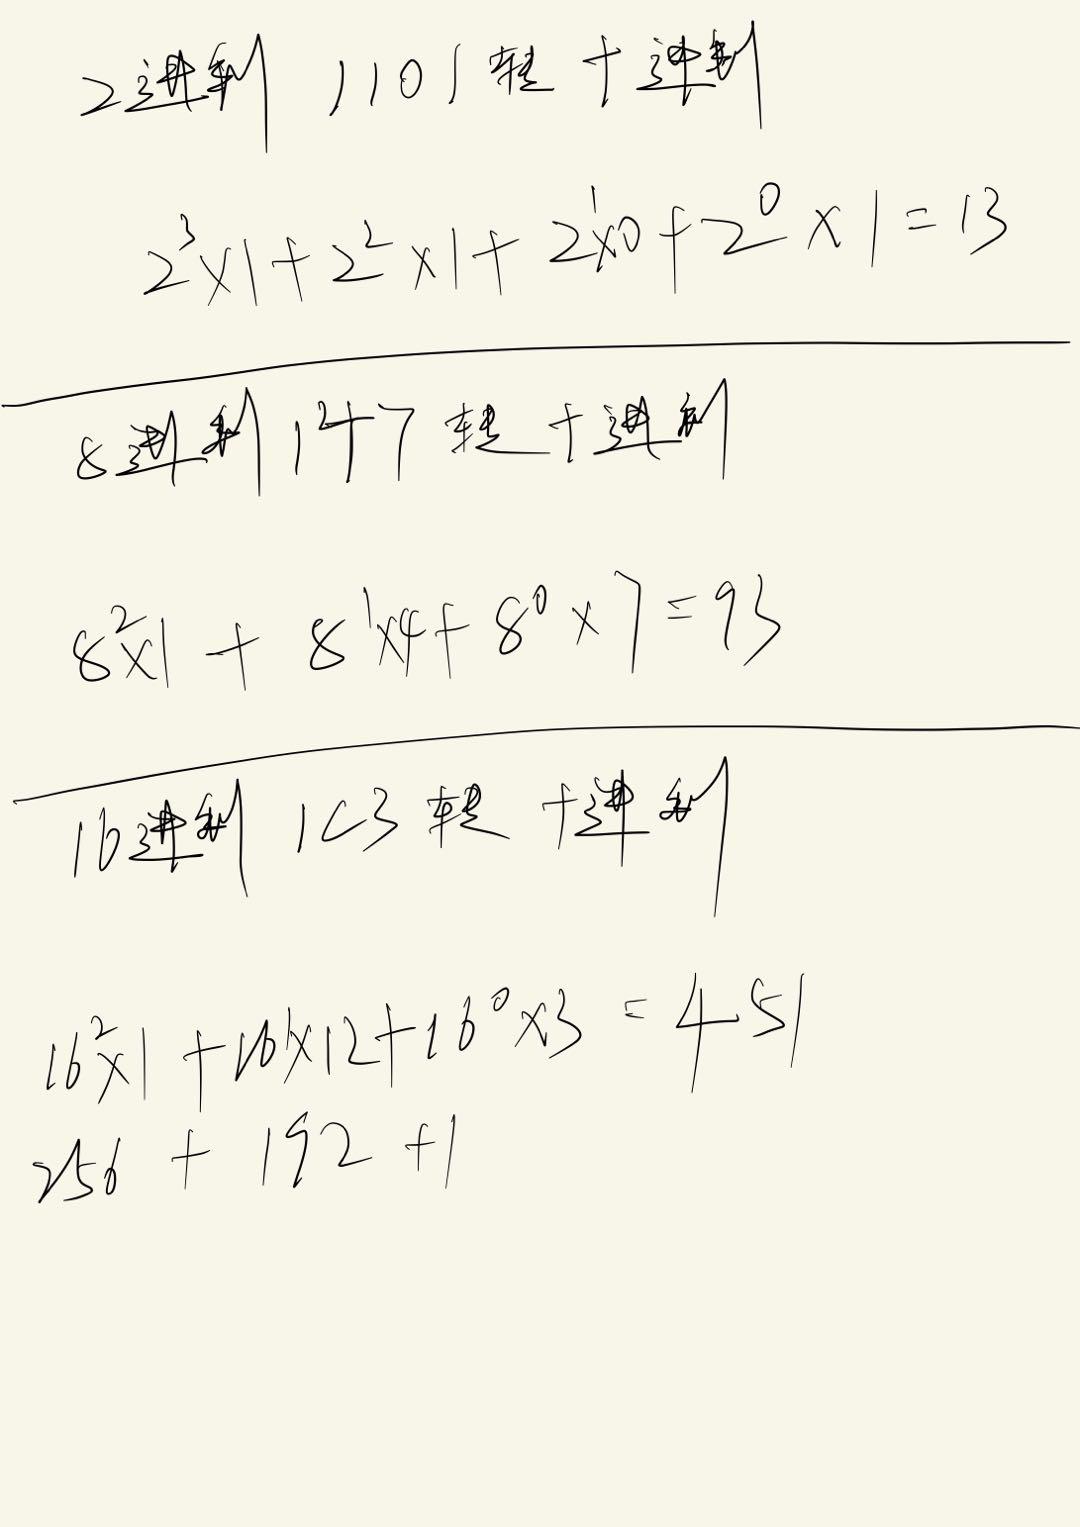 2进制 1101转十进制
2³×1+2²×1+2¹×0+2⁰×1=13
8进制 147 转十进制
8²×1+8¹×4+8⁰×7=93
16进制 1C3 转十进制
16²×1+16¹×12+16⁰×3=451
256+192+1